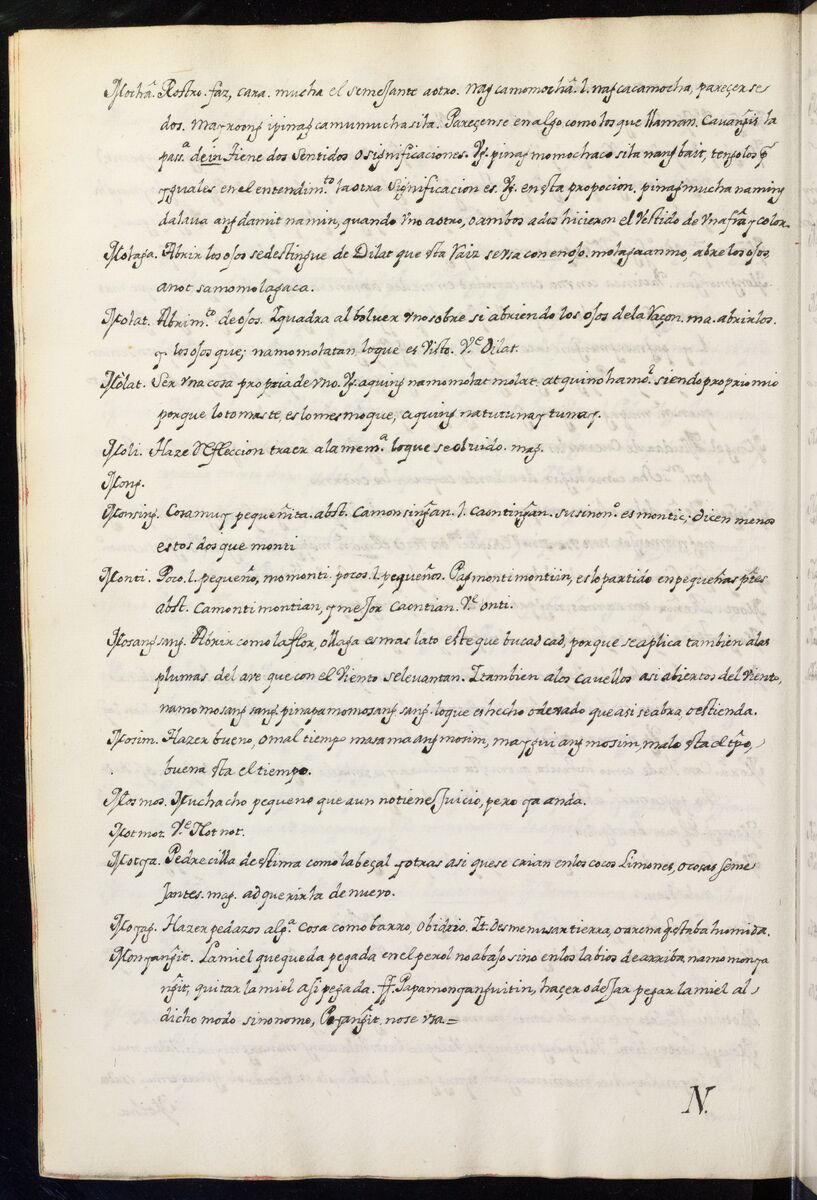 Mochã. Rostro. faz, cara. mucha el semejante aotro. nag camomochã. l. nag cacamocha, pareçer se
dos. mayroong ipinag camumuchasila. Pareçense en algo como los que llaman. Cavangis la
pass.ª de in. tiene dos sentidos o significaciones. Vg. pinag momochaco sila nang bait, tengolos p.r
yguales en el entendim.to la otra significacion es. Vg. en esta propocion, pinag mucha naming
dalaua ang damit namin, quando vno aotro, o ambos ados hicieron el vestido de vna fr̃a y color.
Molaga. Abrir los ojos sedestingue de Dilat que sta raiz se vsa con enojo. molaga anmo, abre los ojos,
anot samomolagaca.
Molat. Abrim.to de ojos. I quadra al bolver vno sobre si abriendo los ojos de la raçon. ma. abrirlos.
y los ojos que; namomolatan, loque es visto. V.e Dilat.
Mòlat. Ser vna cosa propria de vno. Vg. aquing namomolat molat, at quinohamo. siendo proprio mio
porque lo tomaste, es lo mesmo que, aquing natutunay tunay.
Moli. Haze reflección traer ala mem.ª loque se oluido. mag.
Mong.
Monsing. Cosa muy pequeñita. abst. Camonsingan. l. Caontingan. su sinon.º es montic; dicen menos
estos dos que monti
Monti. Poco. l. pequeño, momonti. pocos. l. pequeños. Pagmontimontiin, es lo partido en pequeñas p.tes
abst. Camontimontian, y mejor Caontian. V.e onti.
Mosangsang. Abrir como la flor, o llaga es mas lato este que bucad cad, porque se aplica tambien alas
plumas del ave que con el viento se levantan. I tambien alos cavellos asi abiertos del viento,
namomosang sang pinapamomosang sang. loque es hecho o dexado que asi se abra, o estienda.
Mosim. Hazer bueno, o mal tiempo masama ang mosim, maygui ang mosim, malo sta el tp̃o,
buena sta el tiempo.
Mos mos. Muchacho pequeno que aun no tiene juicio, pero ya anda.
Motmot. V.e Not not.
Motya. Pedrecilla de estima como la beçal y otras asi que se crian en los cocos Limones, o cosas seme
jantes. mag. adquerirla de nuevo.
Moyag. Hazer pedazos alg.ª cosa como barro, o bidrio. It. Desmenusar tierra, o arena q̃ estaba humida.
Monyangit. La miel que queda pegada en el perol no abajo sino en los labios de arriba. namomonya
ngit, quitar la miel asi pegada. ff. Papamonyanguitin, haçer o dejar pegar la miel al
dicho modo sinonomo, Poyangit. no se vsa. =
N.